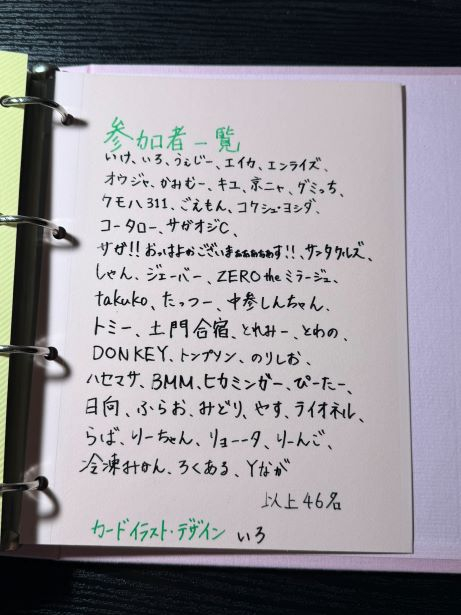 参加者一覧
いけ、いろ、うぇじー、エイカ、エンライズ、
オウジャ、かおむー、キユ、京ニャ、グミっち、
クモハ311、ごえもん、コクシュ・ヨシダ、
コータロー、サガオジC、
サガ!!おっはよおございまぁぁぁぁぁす!!、サンタクルズ、
しゃん、ジェーバー、ZERO the ミラージュ、
takuko、たっつー、中参しんちゃん、
トミー、土門合宿、とれみー、とわの、
DONKEY、トンプソン、のりしお、
ハセマサ、BMM、ヒカミンガー、ぴーたー、
日向、ふらお、みどり、やす、ライオネル、
らば、りーちゃん、リョーータ、りーんご、
冷凍みかん、ろくある、Yなが
以上46名
カードイラスト・デザイン いろ